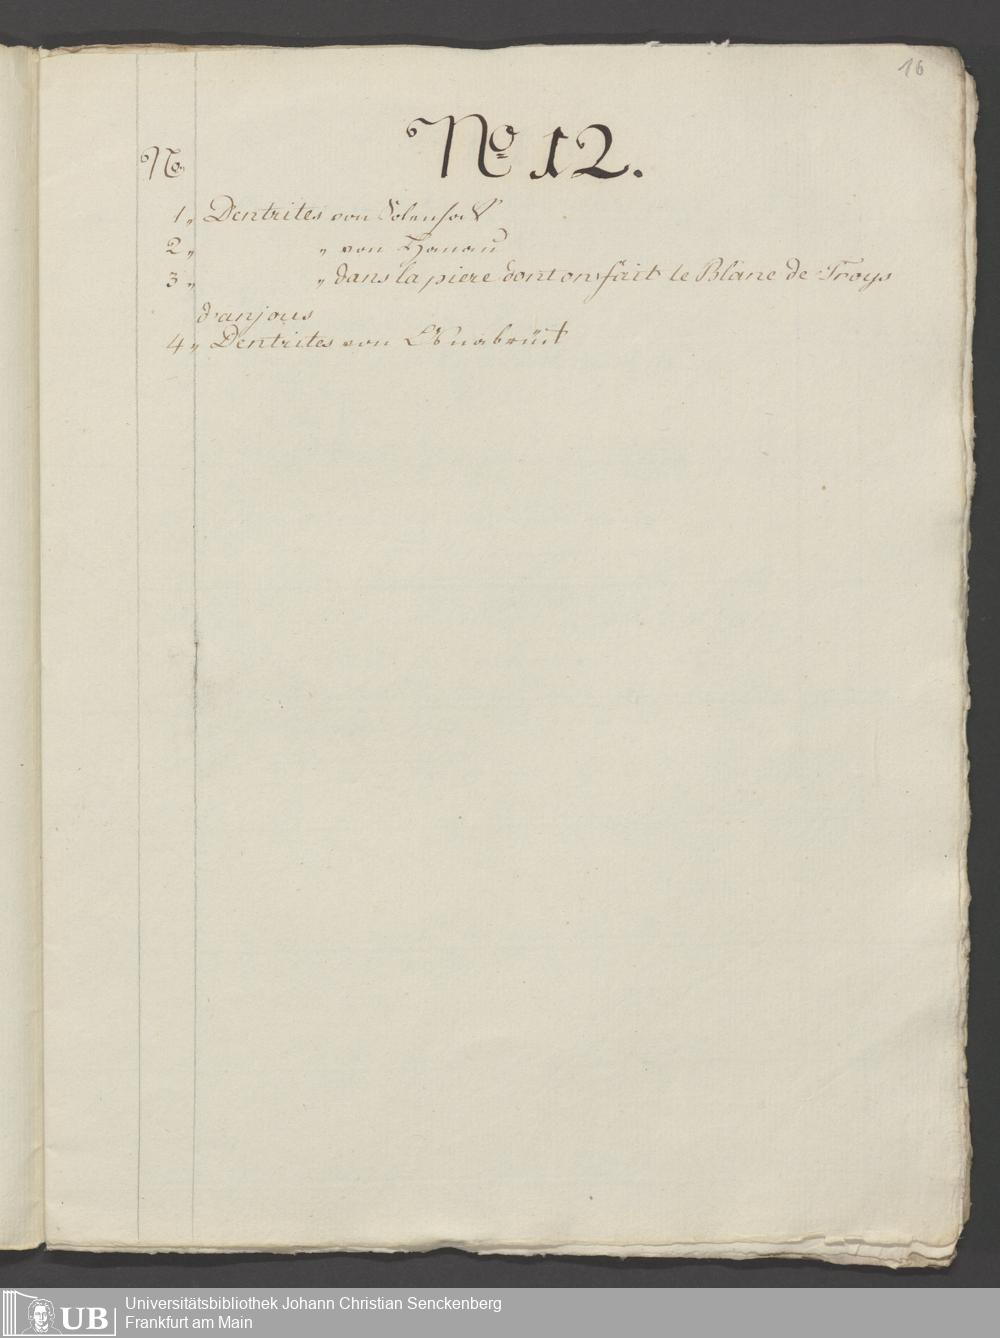 16
No 12.
No
1, Dentrites von Solenhof
2, " von Hanau
3, " dans la piere dont on fait le Blanc de Troys
d'anjous
4, Dentrites von
UB Universitätsbibliothek Johann Christian Senckenberg
Frankfurt am Main